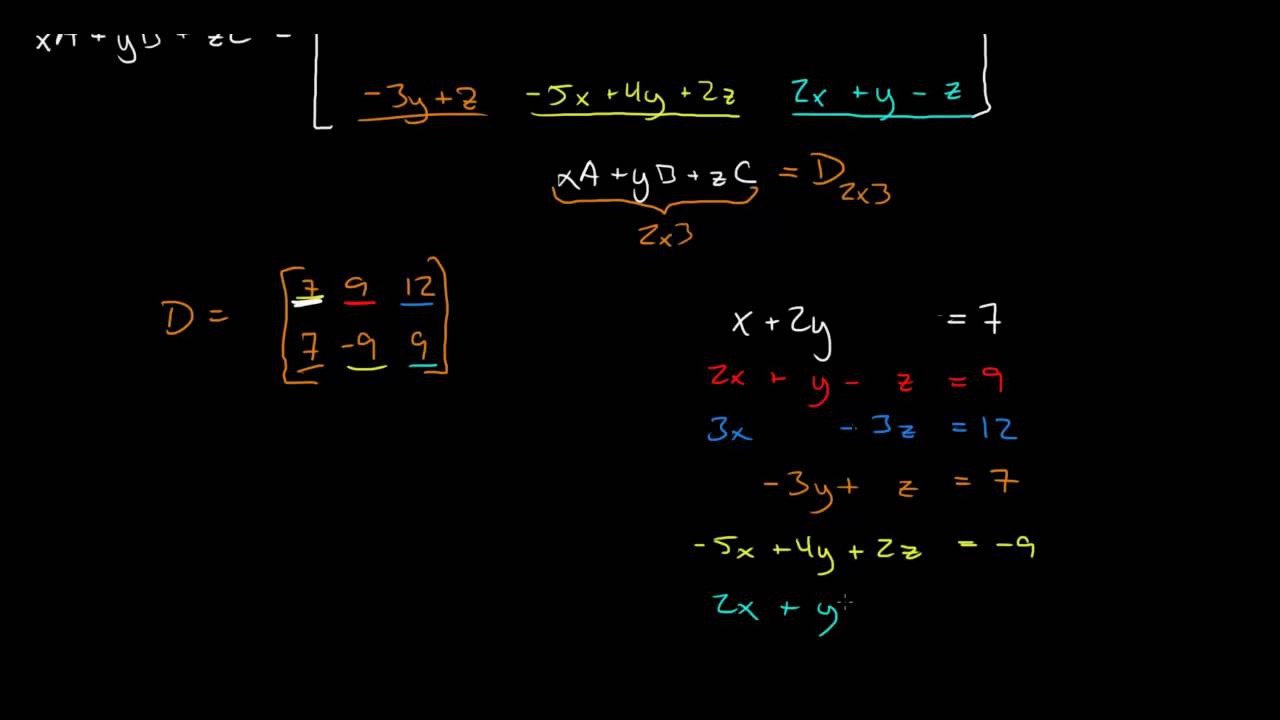 xA + yB + zC =
-3y+z -5x+4y+2z 2x + y - z
xA + yB + zC = D 2x3
2x3
D = [7 9 12
7 -9 9]
x + 2y = 7
2x + y - z = 9
3x - 3z = 12
-3y + z = 7
-5x + 4y + 2z = -9
2x + y